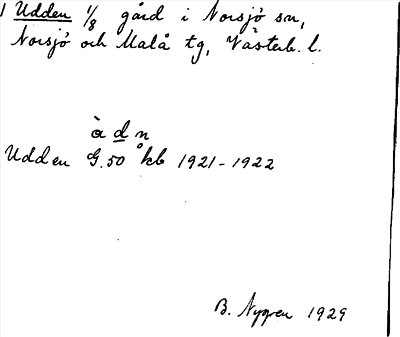 1 Udden 1/8 gård i Norsjö sn,
Norsjö och Malå tg, Västerb. l.
ὰ d n
Udden G.50 kb 1921-1922
B. Nygren 1929